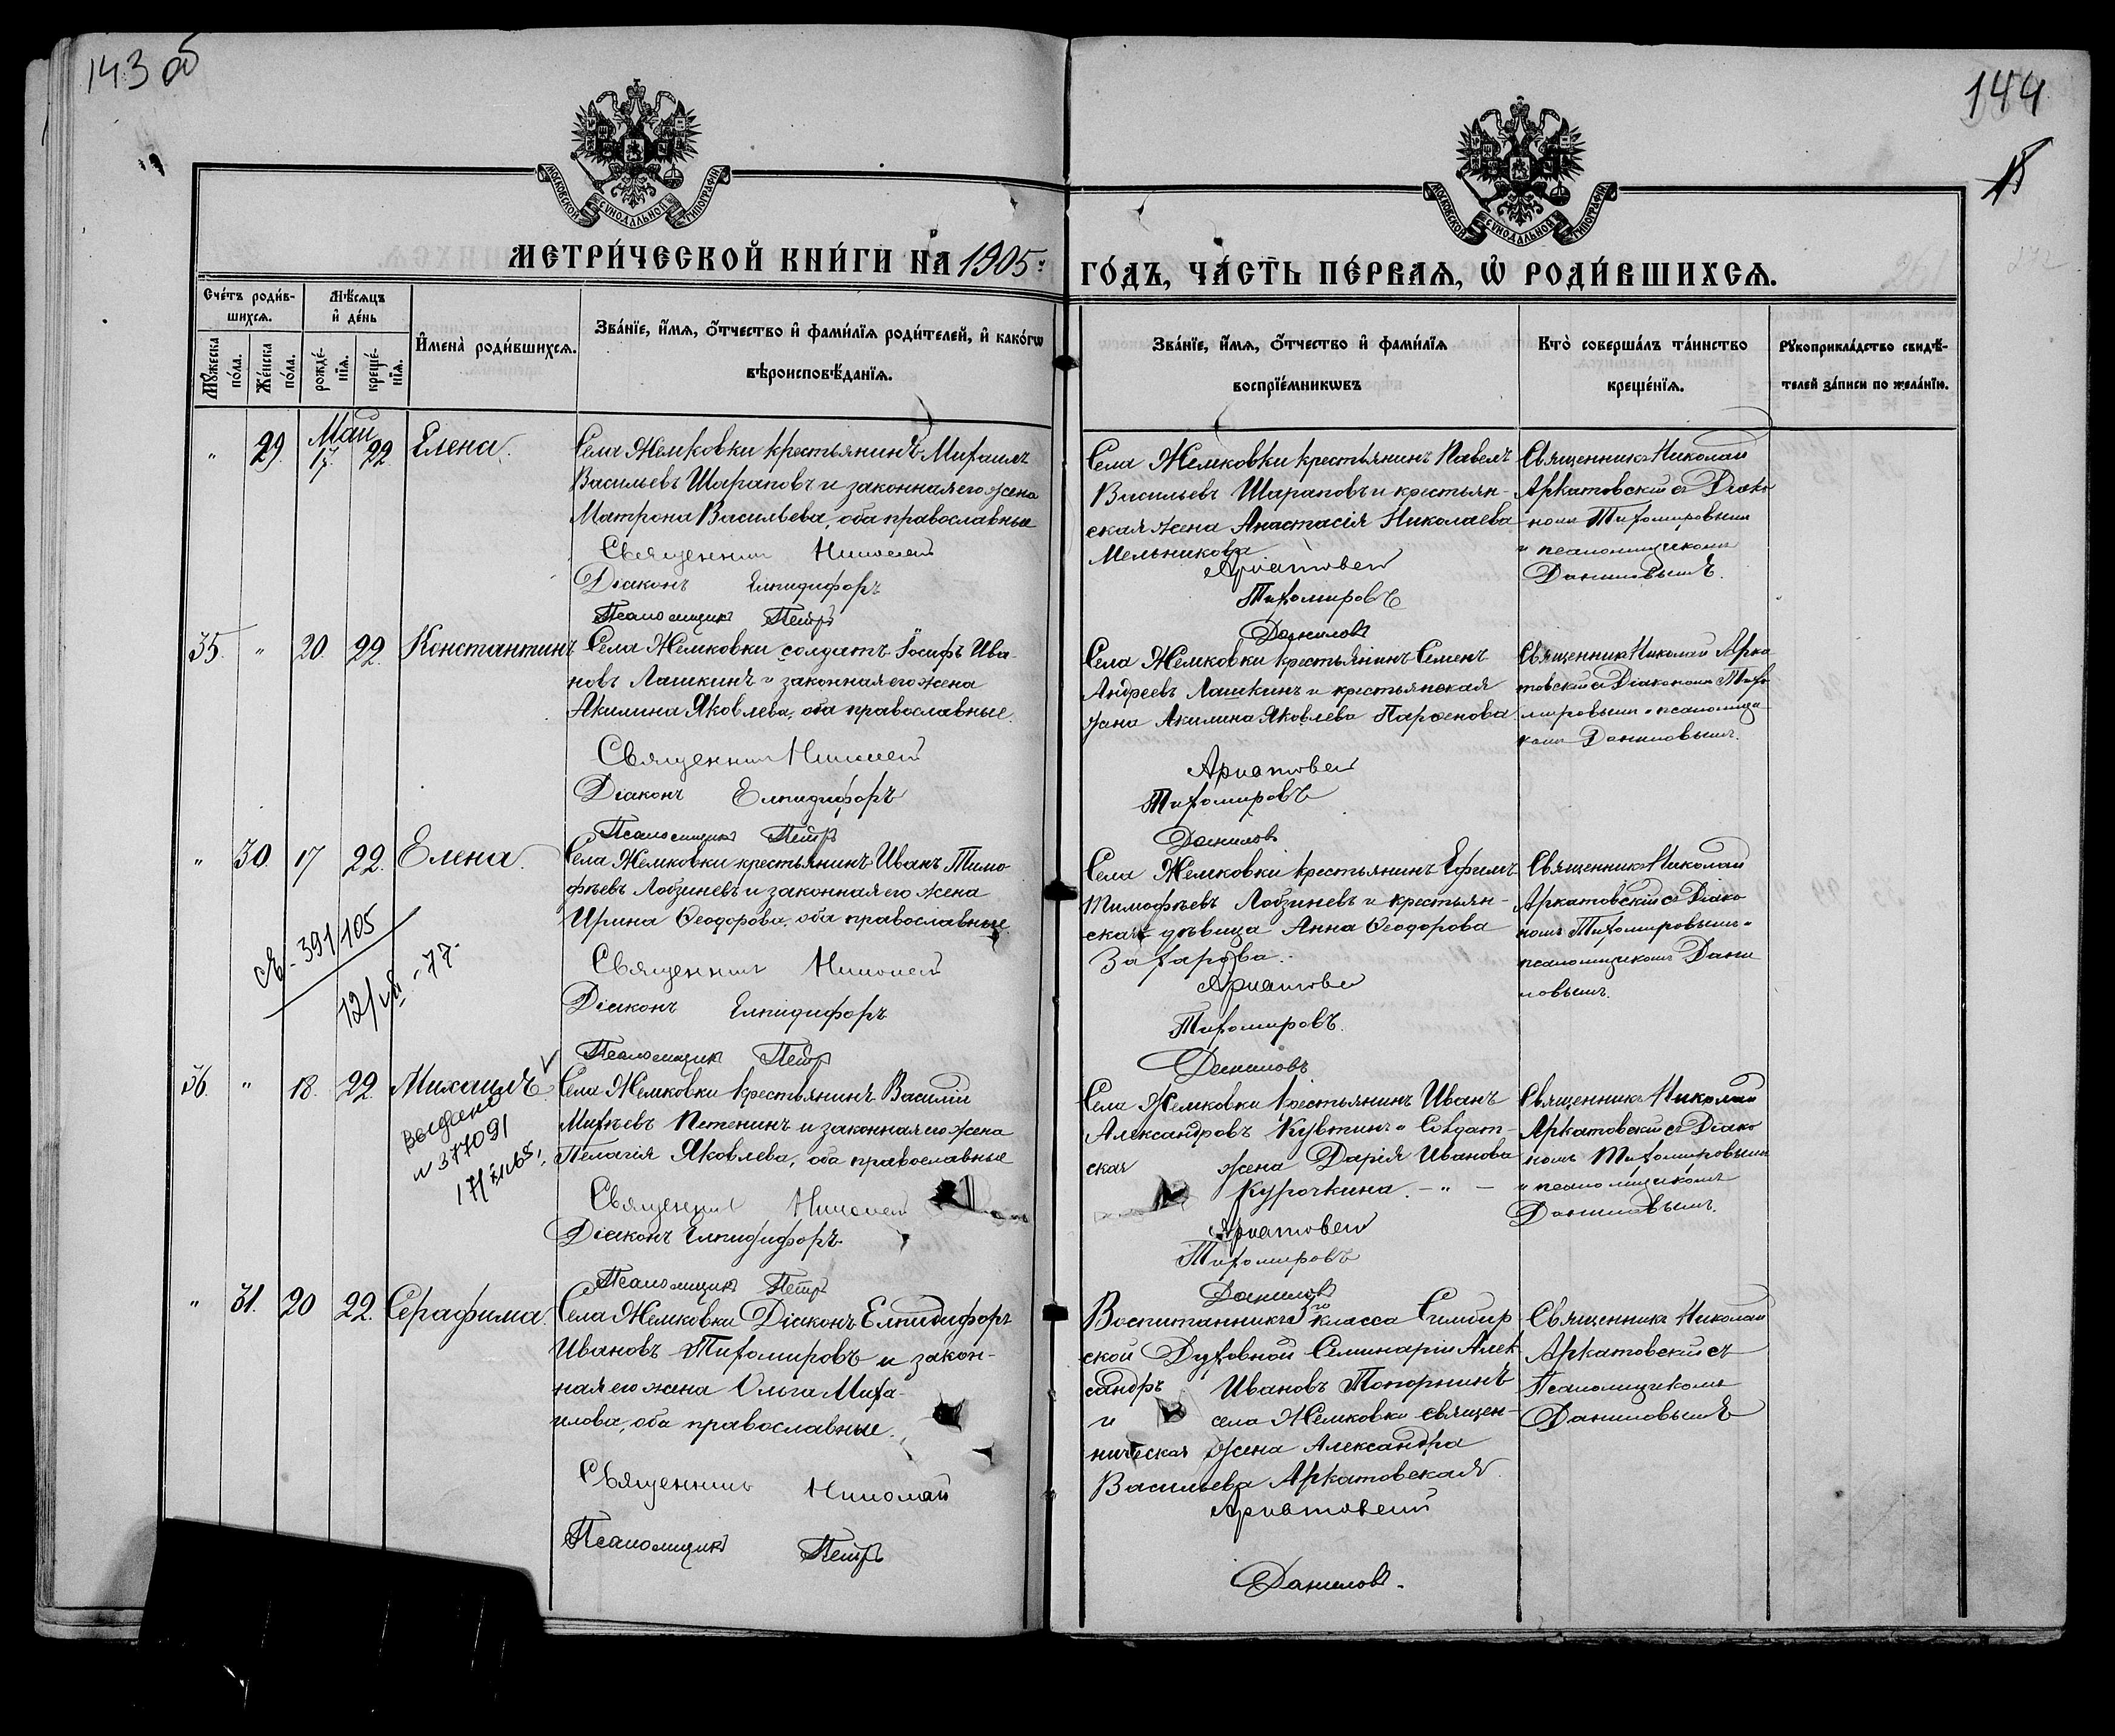 143 об
144
МОСКОВСКОЙ СУНОДАЛЬНОЙ ТИПОГРАФІИ
МОСКОВСКОЙ СУНОДАЛЬНОЙ ТИПОГРАФІИ
МЕТРИ́ЧЕСКОЙ КНИ́ГИ НА 1905:
ГО́ДЪ, ЧА́СТЬ ПЕ́РВАѦ, Ѡ҆ РОДИ́ВШИХСѦ.
Сче́тъ роди́в-
шихсѧ.
Мꙋ́жеска
по́ла.
Же́нска
по́ла.
Мѣ́сѧцъ
и҆ де́нь
рожде́-
нїѧ.
креще́-
нїѧ.
И҆мена̀ роди́вшихсѧ.
Зва́нїе, и҆́мѧ, ѻ҆́тчество и҆ фами́лїѧ роди́телей, и҆ како́гѡ
вѣроисповѣ́данїѧ.
Зва́нїе, и҆́мѧ, ѻ҆́тчество и҆ фами́лїѧ
воспрїе́мникѡвъ
Кто̀ соверша́лъ та́инство
креще́нїѧ.
Рꙋкоприкла́дство свидѣ́-
телей за́писи по жела́нїю.
Май
" 29 17. 22 Елена.
Села Жемковки крестьянинъ Михаилъ
Васильевъ Шараповъ и законная его жена
Матрона Васильева, оба православные
Священник Николай
Діаконъ Елпидифоръ
Псаломщикъ Петръ
Села Жемковки крестьянинъ Павелъ
Васильевъ Шараповъ и крестьян-
ская жена Анастасія Николаева
Мельникова
Аркатовскій
Тихомировъ
Данилов
Священникъ Николай
Аркатовскій съ Діако
номъ Тихомировымъ
и псаломщикомъ
Даниловымъ.
35. " 20. 22. Константинъ
Села Жемковки солдатъ Іосифъ Ива-
новъ Лашкинъ и законная его жена
Акилина Яковлева, оба православные.
Священник Николай
Діаконъ Елпидифоръ
Псаломщикъ Петръ
Села Жемковки крестьянинъ Семенъ
Андреевъ Лашкинъ и крестьянская
жена Акилина Яковлева Парѳенова
Аркатовскій
Тихомировъ
Данилов
Священникъ Николай Арка
товскій съ Діакономъ Тихо
мировымъ и псаломщи
комъ Даниловымъ.
" 30. 17 22. Елена.
Села Жемковки крестьянинъ Иванъ Тимо-
фѣевъ Лобзиневъ и законная его жена
Ирина Ѳеодорова, оба православные
Священник Николай
Діаконъ Елпидифоръ
Псаломщикъ Петръ
Села Жемковки крестьянинъ Ефимъ
Тимофѣевъ Лобзиневъ и крестьян-
ская дѣвица Анна Ѳеодорова
Захарова.
Аркатовскій
Тихомировъ.
Даниловъ
Священникъ Николай
Аркатовскій съ Діако
номъ Тихомировымъ и
псаломщикомъ Дани
ловымъ.
391/105
12/VII-77.
36. " 18. 22. Михаилъ
Выдано
N 377091
Села Жемковки крестьянинъ Василій
Михѣевъ Петенинъ и законная его жена
Пелагія Яковлева, оба православные
Священник Николай
Діаконъ Елпидифоръ
Псаломщикъ Петръ
Села Жемковки крестьянинъ Иванъ
Александровъ Кувтинъ и Солдат-
ская жена Дарія Иванова
Курочкина. – " –
Аркатовскій
Тихомировъ
Данилов
Священникъ Николай
Аркатовскій съ Діако
номъ Тихомировымъ
и псаломщикомъ
Даниловымъ.
" 31. 20 22. Серафима.
Села Жемковки Діаконъ Елпидифоръ
Ивановъ Тихомировъ и закон-
ная его жена Ольга Миха-
илова, оба православные.
Священник Николай
Псаломщикъ Петръ
Воспитанникъ 3го класса Симбир
ской Духовной Семинаріи Алек
сандръ Ивановъ Топорнинъ
и села Жемковки священ-
ническая жена Александра
Васильева Аркатовская.
Аркатовскій
Данилов.
Священникъ Николай
Аркатовскій съ
Псаломщикомъ
Даниловымъ